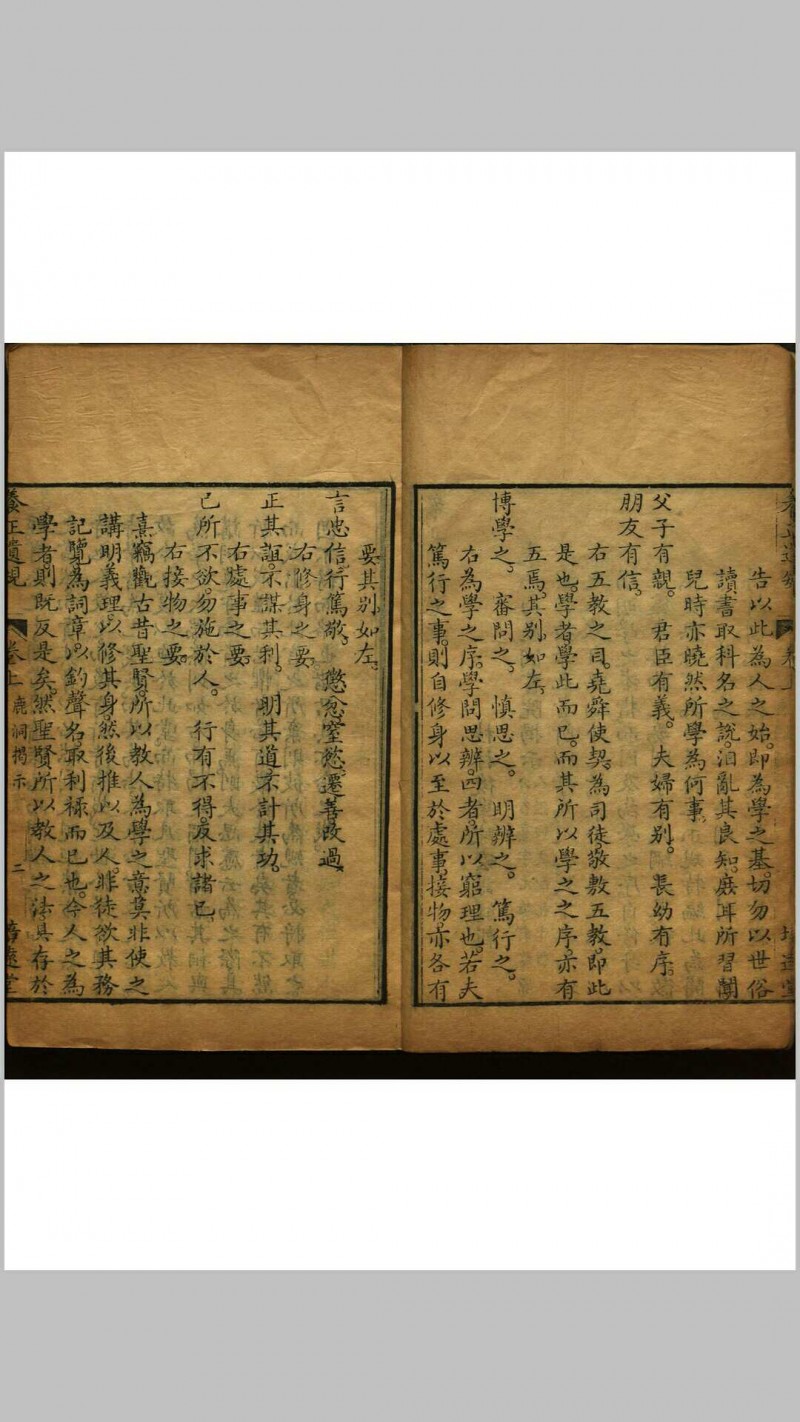 告以此為人之始。即為學之基。切勿以世俗
讀書取科名之說。汩亂其良知。庶耳所習聞
兒時亦曉然所學為何事。
父子有親。 君臣有義。 夫婦有別。 長幼有序。
朋友有信。
右五教之目。堯舜使契。為司徒敬敷五教。即此
是也。學者學此而已。而其所以學之之序。亦有
五焉。其別如左。
博學之。 審問之。 慎思之。 明辨之。 篤行之。
右為學之序。學問思辨。四者所以窮理也。若夫
篤行之事。則自修身以至於處事。接物。亦各有
要其別如左。
言忠信。行篤敬。 懲忿窒慾。遷善改過。
右修身之要。
正其誼。不謀其利。 明其道。不計其功。
右處事之要。
己所不欲。勿施於人。 行有不得。反求諸己。
右接物之要。
熹竊觀古昔聖賢。所以教人為學之意。莫非使之
講明義理。以修其身。然後推以及人。非徒欲其務
記覽為詞章。以釣聲名取利祿而已也。今人之為
學者。則既反是矣。然聖賢所以教人之法。具存於
養正遺規 卷上 鹿洞揭示 二 培遠堂